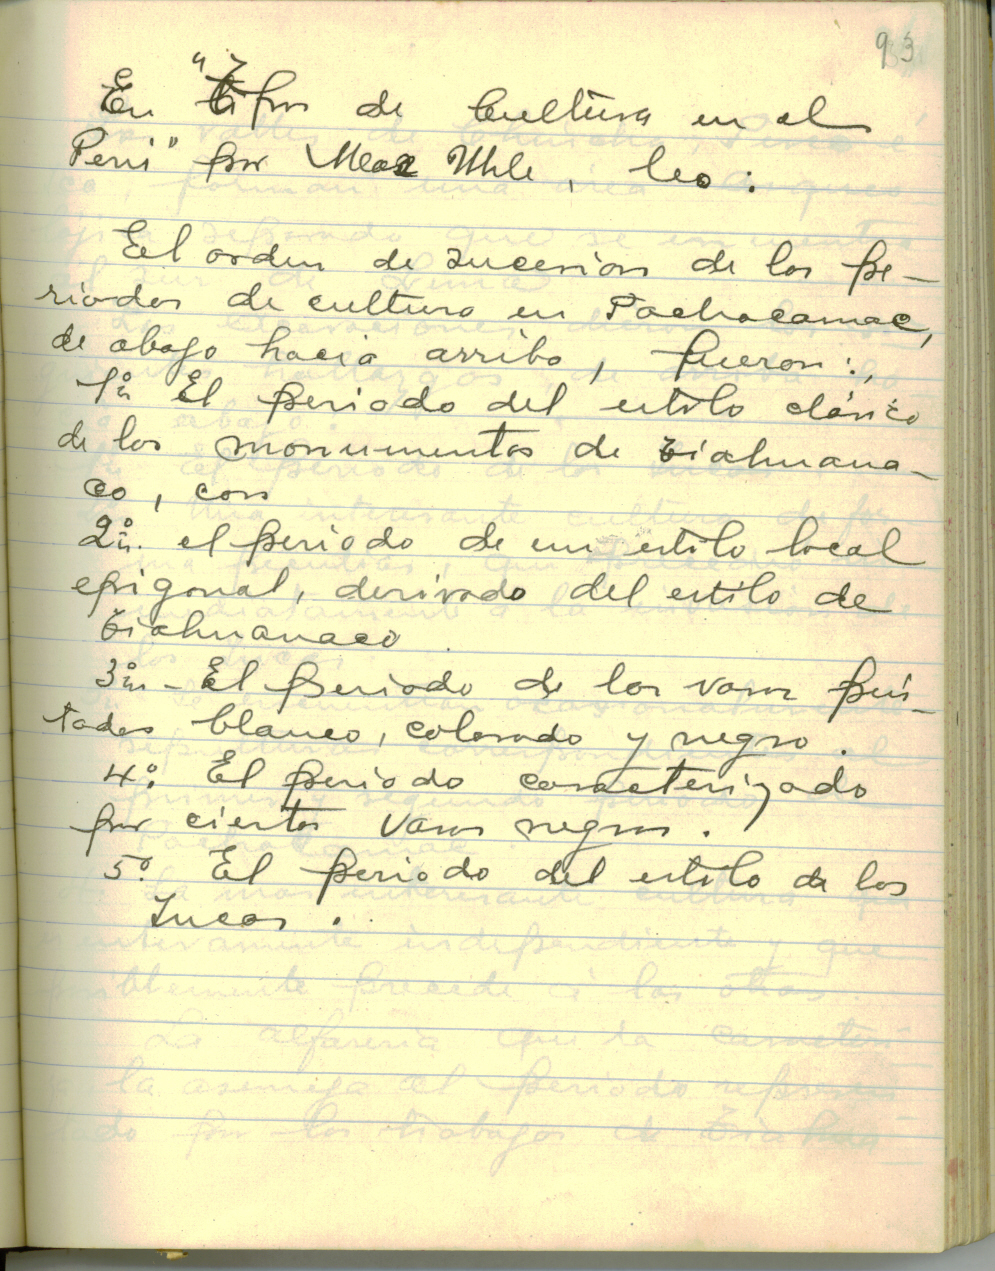 93
En "Tipos de Cultura en el
Perú" por Max Uhle, leo:
El orden de sucesion de los pe-
riodos de cultura en Pachacamac,
de abajo hacia arriba, fueron:,
1º El periodo del estilo clásico
de los monumentos de Tiahuana-
co, con
2º. el periodo de un estilo local
epigonal, derivado del estilo de
Tiahuanaco
3º - El periodo de los vasos pin-
tados blanco, colorado y negro.
4º. El periodo caracterizado
por ciertos vasos negros.
5º. El periodo del estilo de los
Incas.